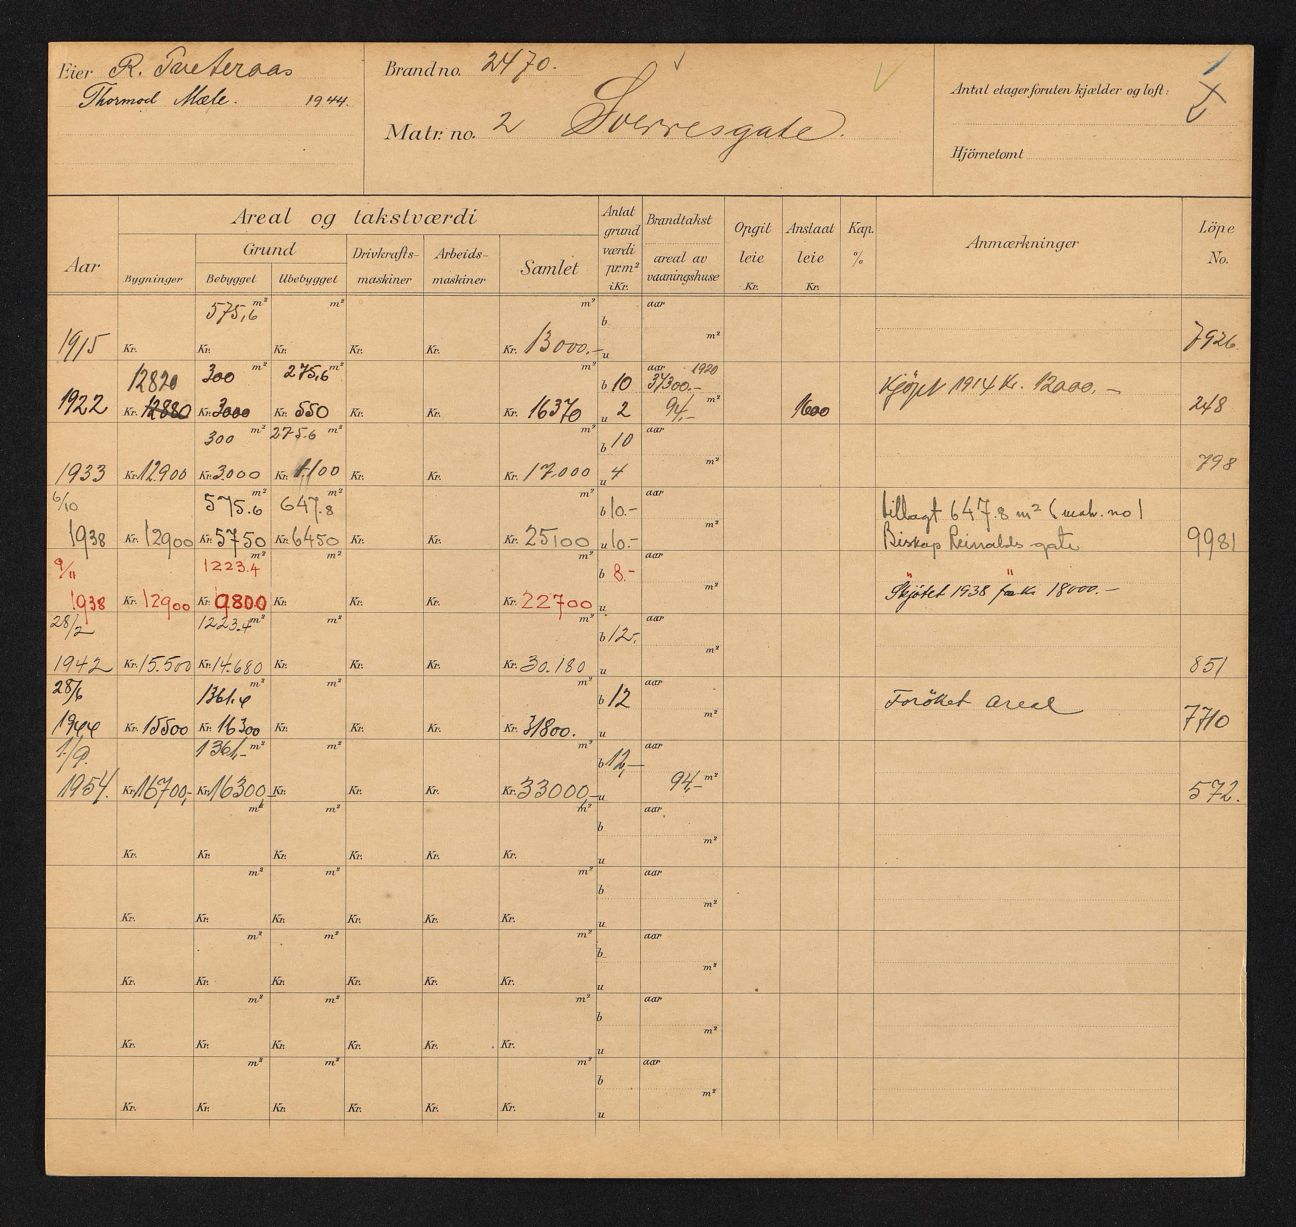 Eier R. Tveteraas
Thormod Mæle. 1944.
Brand no. 2470.
Matr. no. 2 Sverresgate.
Antal etager foruten kjælder og loft:
Hjörnetomt
Aar
Areal og takstværdi
Bygninger
Grund
Bebygget Ubebygget
Drivkrafts-maskiner
Arbeids-maskiner
Samlet
Antal grund værdi pr. m² i Kr.
Brandtakst
areal av vaaningshuse
Opgit leie Kr.
Anslaat leie Kr.
Kap. %
Anmærkninger
Löpe No.
575,6 m² m² m² b aar
1915 Kr. Kr. Kr. Kr. Kr. Kr. 13000,- u m² 7926.
12820 300 m² 275,6 m² m² b 10 aar 1920 37300.- Kjöpt 1914 Kr. 12000.-
1922 Kr. 12880 Kr. 3000 Kr. 550 Kr. Kr. Kr. 16370 u 2 94,- m² 1600 248
300 m² 275.6 m² m² b 10 aar
1933 Kr. 12.900 Kr. 3.000 Kr. 1.100 Kr. Kr. Kr. 17.000 u 4 m² 798
6/10 575.6 m² 647.8 m² m² b 10.- aar tillagt 647.8 m² (matr. no)
1938 Kr. 12900 Kr. 5750 Kr. 6450 Kr. Kr. Kr. 25100 u 10.- m² Biskop Reinalds gate 9981
9/11 1223.4 m² m² m² b 8.- aar
1938 Kr. 12900 Kr. 9800 Kr. Kr. Kr. Kr. 22700 u m² Skjötet 1938 for Kr 18000.-
28/2 1223.4 m² m² m² b 12.- aar
1942 Kr. 15.500 Kr. 14.680 Kr. Kr. Kr. Kr. 30.180 u m² 851
28/6 1361.4 m² m² m² b 12 aar Foröket areal
1944 Kr. 15500 Kr. 16300 Kr. Kr. Kr. Kr. 31800. u m² 7710
1/9. 1361,- m² m² m² b 12,- aar
1954. Kr. 16700,- Kr. 16300,- Kr. Kr. Kr. Kr. 33000,- u 94,- m² 572.
m² m² m² b aar
Kr. Kr. Kr. Kr. Kr. Kr. u m²
m² m² m² b aar
Kr. Kr. Kr. Kr. Kr. Kr. u m²
m² m² m² b aar
Kr. Kr. Kr. Kr. Kr. Kr. u m²
m² m² m² b aar
Kr. Kr. Kr. Kr. Kr. Kr. u m²
m² m² m² b aar
Kr. Kr. Kr. Kr. Kr. Kr. u m²